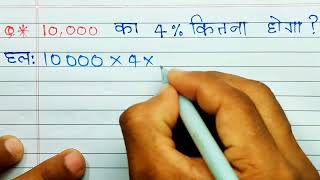 Q* 10,000 का 4% कितना होगा?
हल: 10000 × 4 ×